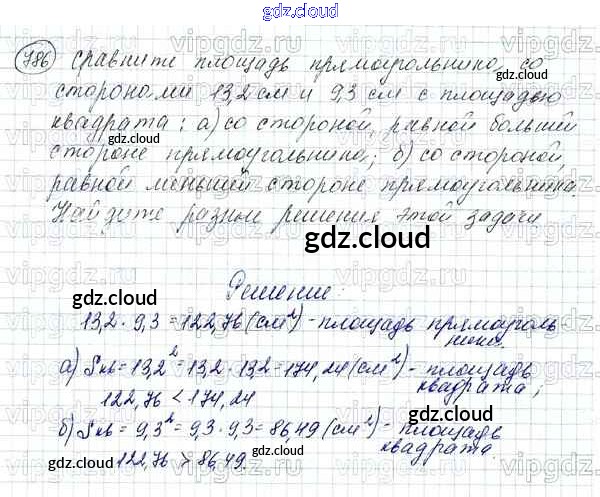 gdz.cloud
786 Сравните площадь прямоугольника со
сторонами 13,2 см и 9,3 см с площадью
квадрата: а) со стороной, равной большей
стороне прямоугольника; б) со стороной,
равной меньшей стороне прямоугольника.
Найдите разные решения этой задачи
gdz.cloud
Решение:
13,2 · 9,3 = 122,76 (см²) - площадь прямоуголь
ника.
а) Sкв = 13,2² = 13,2 · 13,2 = 174,24 (см²) - площадь
квадрата;
122,76 < 174,24
б) Sкв = 9,3² = 9,3 · 9,3 = 86,49 (см²) - площадь
квадрата.
122,76 > 86,49.